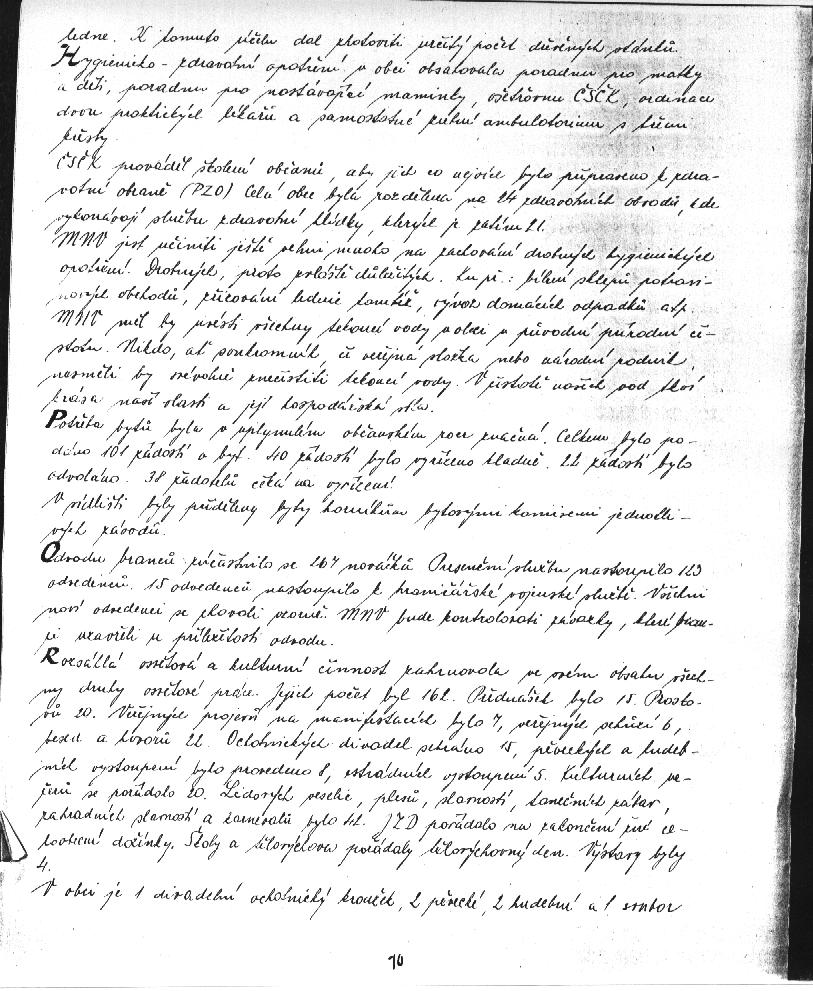 ledne. K tomuto účelu dal zhotoviti určitý počet dřevěných stánků.
Hygienicko - zdravotní opatření v obci obsahovala poradnu pro matky
a děti, poradnu pro nastávající maminky, ošetřovnu ČSČK, ordinaci
dvou praktických lékařů a samostatné zubní ambulatorium s třemi
křesly.
ČSČK prováděl školení občanů, aby jich co nejvíce bylo připraveno k zdra-
votní obraně (PZO) Celá obec byla rozdělena na 24 zdravotních obvodů, kde
vykonávají službu zdravotní hlídky, kterých je zatím 21.
MNV jest učiniti ještě velmi mnoho na zachování drobných hygienických
opatření. Drobných, proto zvláště důležitých. Ku př.: bílení sklepů potravi-
nových obchodů, klíčování lednic, vývoz domácích odpadků atp.
MNV měl by uvésti všechny tekoucí vody v obci v původní přírodní či-
stotu. Nikdo, ať soukromník, či veřejná složka nebo národní podnik
nesměli by svévolně znečistiti tekoucí vody. V čistotě našich vod tkví
krása naší vlasti a její hospodářská síla.
Potřeba bytů byla v uplynulém občanském roce značná. Celkem bylo po-
dáno 101 žádostí o byt. 40 žádostí bylo vyřízeno kladně. 22 žádostí bylo
odvoláno. 38 žadatelů čeká na vyřízení
V sídlišti byly přiděleny byty horníkům bytovými komisemi jednotli-
vých závodů.
Odvodu branců zúčastnilo se 267 nováčků Presenční službu nastoupilo 123
odvedenců. 15 odvedenců nastoupilo k hraničářské vojenské službě. Všichni
noví odvedenci se chovali vzorně. MNV bude kontrolovati závazky, které bran-
ci uzavřeli u příležitosti odvodu.
Rozsáhlá osvětová a kulturní činnost zahrnovala ve svém obsahu všech-
ny druhy osvětové práce. Jejich počet byl 162. Přednášek bylo 15. Prosto-
vů 20. Veřejných projevů na manifestacích bylo 7, veřejných schůzí 6,
besed a hovorů 22. Ochotnických divadel sehráno 15, pěveckých a hudeb-
ních vystoupení bylo provedeno 8, estrádních vystoupení 5. Kulturních ve-
čerů se pořádalo 20. Lidových veselic, plesů, slavností, tanečních zábav,
zahradních slavností a karnevalů bylo 42. JZD pořádalo na zakončení žní ce-
loobecní dožínky. Školy a tělovýchova pořádaly tělovýchovný den. Výstavy byly
4.
V obci je 1 divadelní ochotnický kroužek, 2 pěvecké, 2 hudební a 1 soubor
10